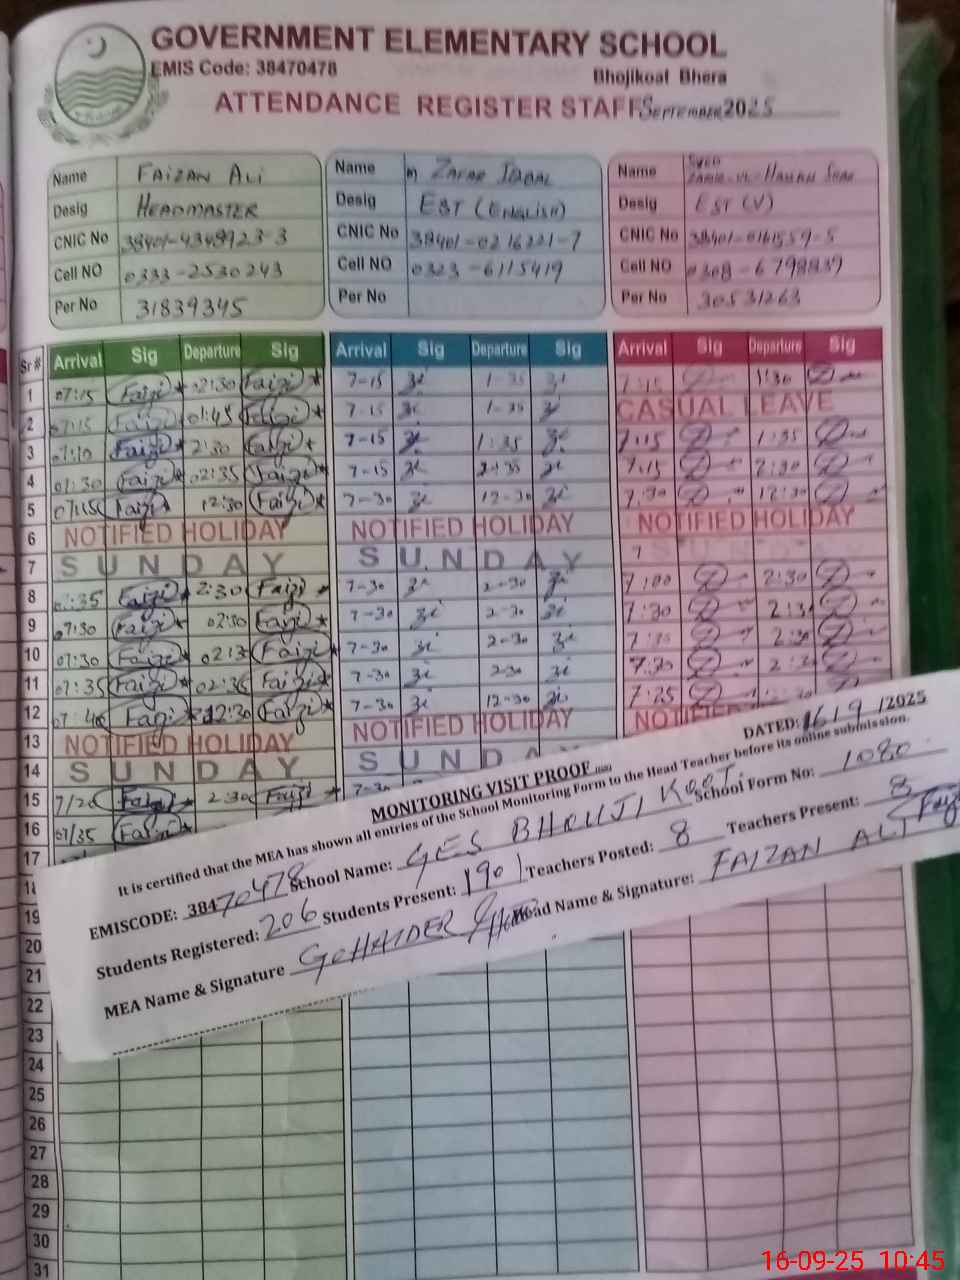 GOVERNMENT ELEMENTARY SCHOOL
EMIS Code: 38470478
Bhojikoat Bhera
ATTENDANCE REGISTER STAFF September 2025
Name FAIZAN ALI Name M ZAFAR IQBAL Name SYED ZAMIR-UL-HASSAN SHAH
Desig HEADMASTER Desig EST (ENGLISH) Desig EST (V)
CNIC No 38401-4349923-3 CNIC No 38401-0216221-7 CNIC No 38401-0161559-5
Cell NO 0333-2530243 Cell NO 0323-6115419 Cell NO 0308-6798839
Per No 31839345 Per No Per No 30531263
Sr# Arrival Sig Departure Sig Arrival Sig Departure Sig Arrival Sig Departure Sig
1 07:15 Faizi 02:30 Faizi 7-15 1-35 7:15 1:30
2 07:15 Faizi 01:45 Faizi 7-15 1-35 CASUAL LEAVE
3 07:10 Faizi 2:30 Faizi 7-15 1:35 7:15 1:35
4 07:30 Faizi 02:35 Faizi 7-15 2-35 7:15 2:30
5 07:15 Faizi 12:30 Faizi 7-30 12-30 7:30 12:30
6 NOTIFIED HOLIDAY NOTIFIED HOLIDAY NOTIFIED HOLIDAY
7 SUNDAY SUNDAY 7
8 07:35 Faizi 2:30 Faizi 7-30 2-30 7:00 2:30
9 07:30 Faizi 02:30 Faizi 7-30 2-30 7:30 2:3
10 07:30 Faizi 02:3 Faizi 7-30 2-30 2:30
11 07:35 Faizi 02:35 Faizi 7-30 2-30 7:30
12 07:40 Faizi 12:30 Faizi 7-30 12-30 7:25
13 NOTIFIED HOLIDAY NOTIFIED HOLIDAY NOTIFIED
14 SUNDAY SUND
15 7/20 Faizi 2:30 Faizi
16 07/35 Faizi
17
DATED: 16/9/2025
MONITORING VISIT PROOF
It is certified that the MEA has shown all entries of the School Monitoring Form to the Head Teacher before its online submission.
EMISCODE: 38470478 School Name: GES BHOUJI KOOT School Form No: 1080
Students Registered: 206 Students Present: 190 Teachers Posted: 8 Teachers Present: 8
MEA Name & Signature G HAIDER Head Name & Signature: FAIZAN ALI Faizi
19
20
21
22
23
24
25
26
27
28
29
30
31
16-09-25 10:45